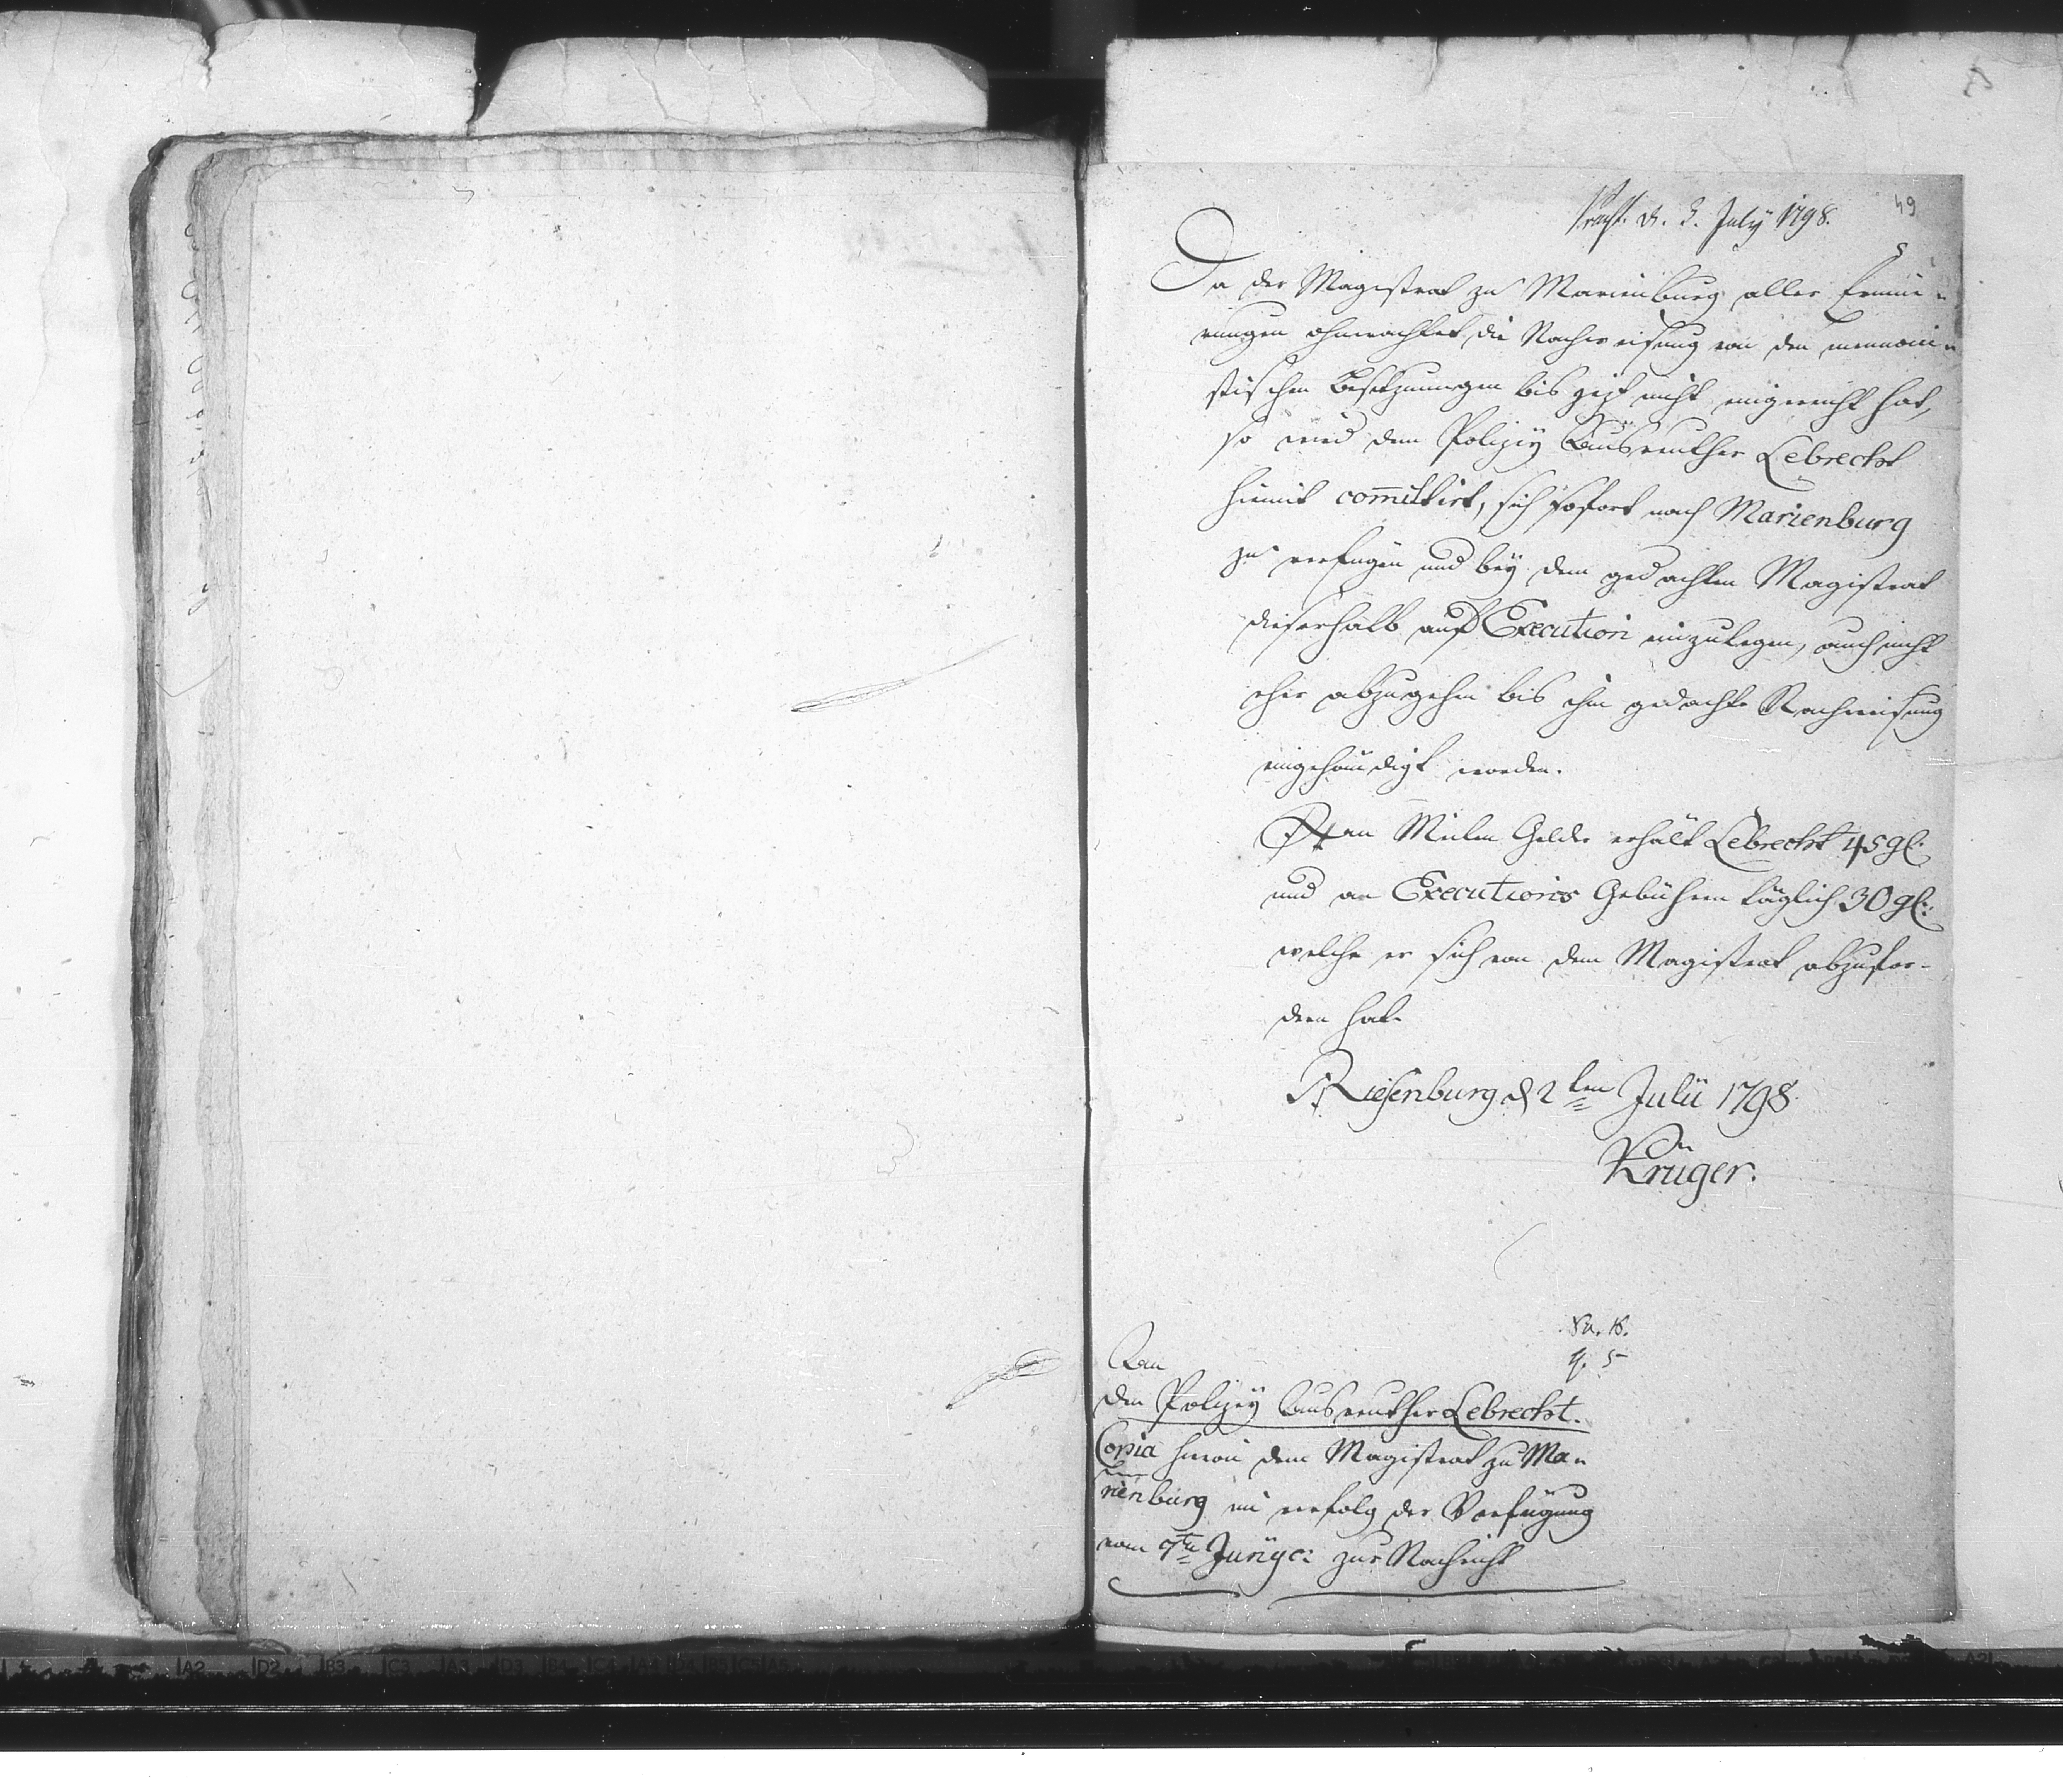 49
praes. d. 3. July 1798.
Da der Magistrat zu Marienburg aller Erinne-
rungen ohnerachtet, die Nachweisung von den mennoni-
stischen Besitzungen bis jezt nicht eingereicht hat,
so wird dem Polizey Ausreuther Lebrecht
hiemit committirt, sich sofort nach Marienburg
zu verfügen und bey dem gedachten Magistrat
dieserhalb auf Execution einzulegen, auch nicht
eher abzugehen bis ihm gedachte Nachweisung
eingehändigt worden.
An Meilen Gelder erhält Lebrecht 45 gl.
und an Executions Gebühren täglich 30 gl.
welche er sich von dem Magistrat abzufor-
dern hat.
Riesenburg d 2ten Julii 1798
Krüger.
An
den Polizey Ausreuther Lebrecht.
Copia hievon dem Magistrat zu Ma-
rienburg im verfolg der Verfügung
vom 9ten Juny c: zur Nachricht